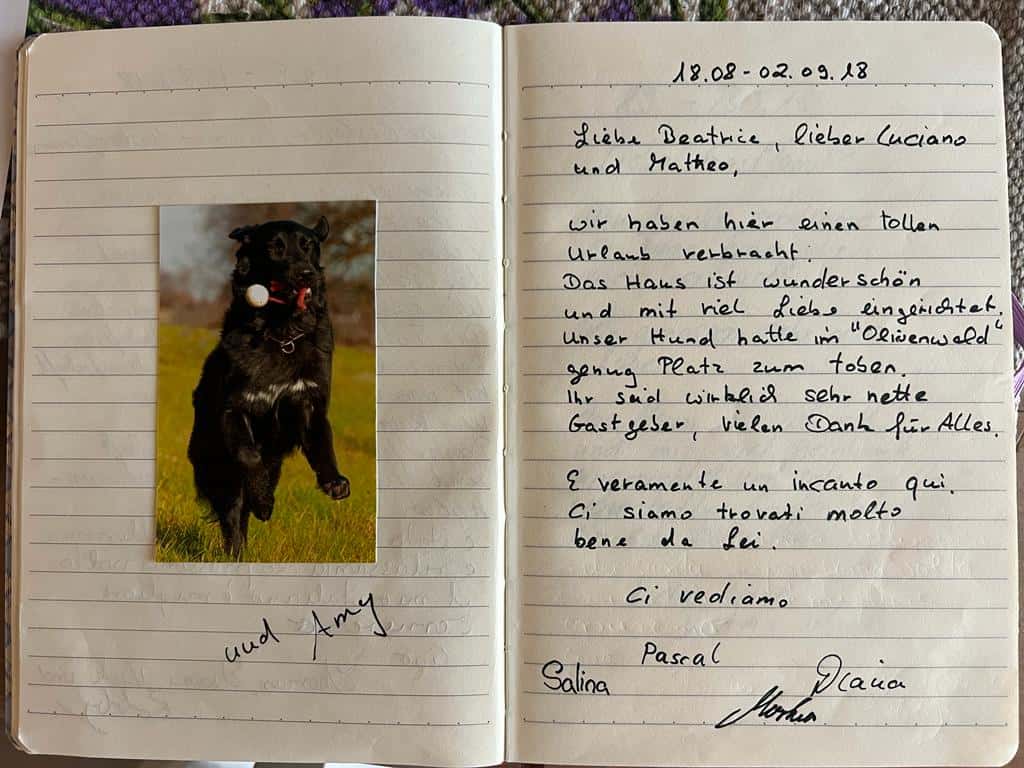 und Amy
18.08 - 02.09.18
Liebe Beatrice, lieber Luciano
und Matheo,
wir haben hier einen tollen
Urlaub verbracht.
Das Haus ist wunderschön
und mit viel Liebe eingerichtet.
Unser Hund hatte im "Olivenwald"
genug Platz zum toben.
Ihr seid wirklich sehr nette
Gastgeber, vielen Dank für Alles.
E veramente un incanto qui.
Ci siamo trovati molto
bene da Lei.
Ci vediamo
Pascal
Salina Diana